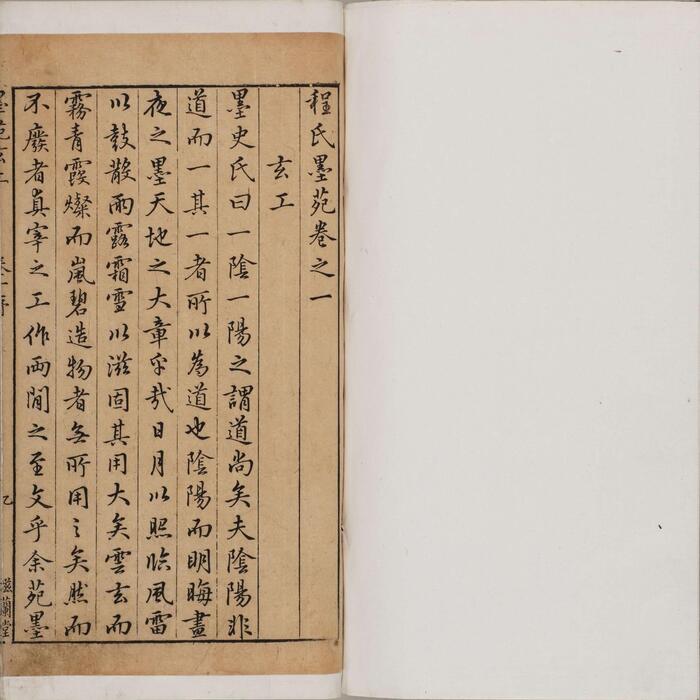 程氏墨苑卷之一
玄工
墨史氏曰一陰一陽之謂道尚矣夫陰陽非
道而一其一者所以為道也陰陽而明晦晝
夜之墨天地之大章乎哉日月以照臨風雷
以鼓散雨露霜雪以滋固其用大矣雲玄而
霧青霞燦而嵐碧造物者無所用之矣然而
不廢者真宰之工作兩間之至文乎余苑墨
滋蘭堂